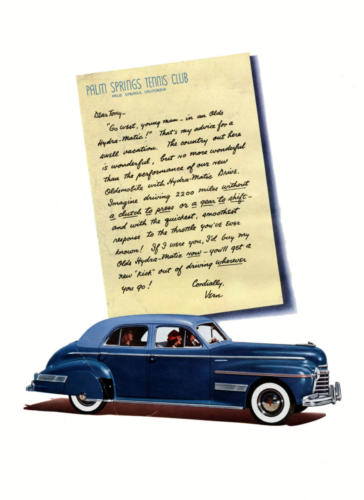 PALM SPRINGS TENNIS CLUB
PALM SPRINGS, CALIFORNIA
Dear Tony—
"Go west, young man — in an Olds
Hydra-Matic!" That's my advice for a
swell vacation. The country out here
is wonderful, but no more wonderful
than the performance of our new
Oldsmobile with Hydra-Matic Drive.
Imagine driving 2200 miles without
a clutch to press or a gear to shift—
and with the quickest, smoothest
response to the throttle you've ever
known! If I were you, I'd buy my
Olds Hydra-Matic now — you'll get a
new "kick" out of driving wherever
you go!
Cordially,
Vern